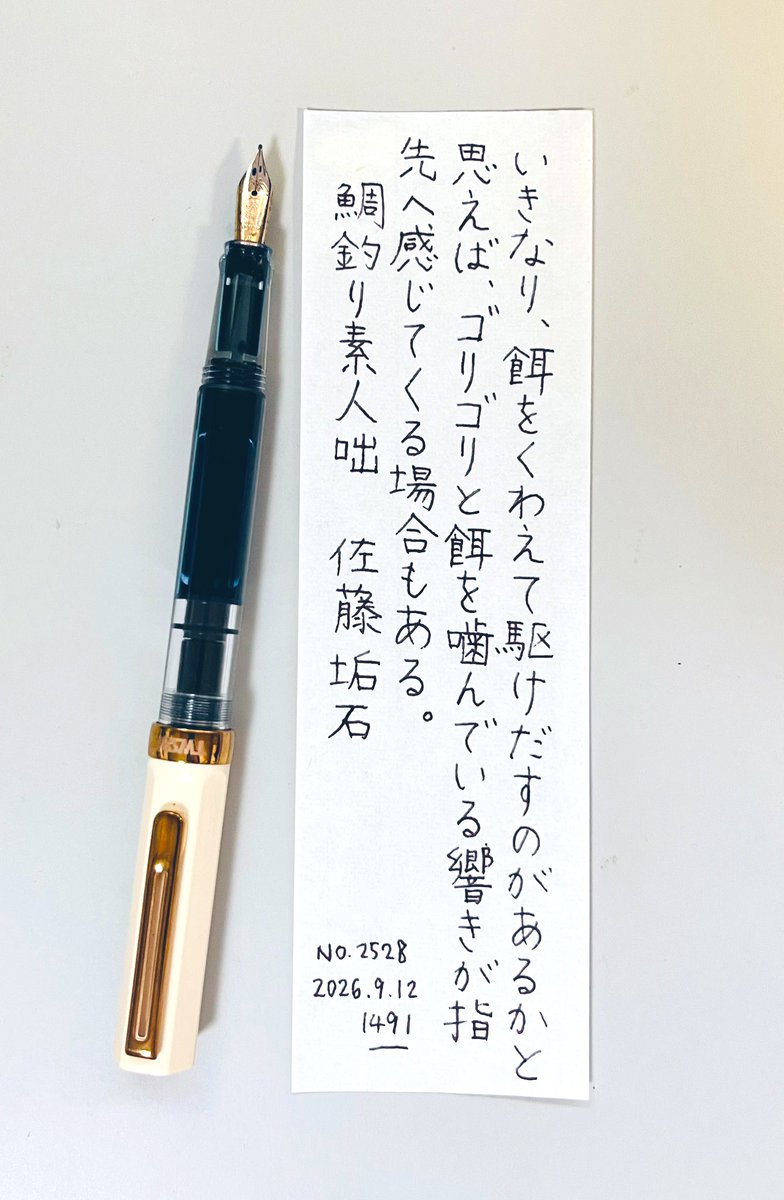 いきなり、餌をくわえて駆けだすのがあるかと
思えば、ゴリゴリと餌を噛んでいる響きが指
先へ感じてくる場合もある。
鯛釣り素人咄　佐藤垢石
NO.2528
2026.9.12
1491
TWSBI